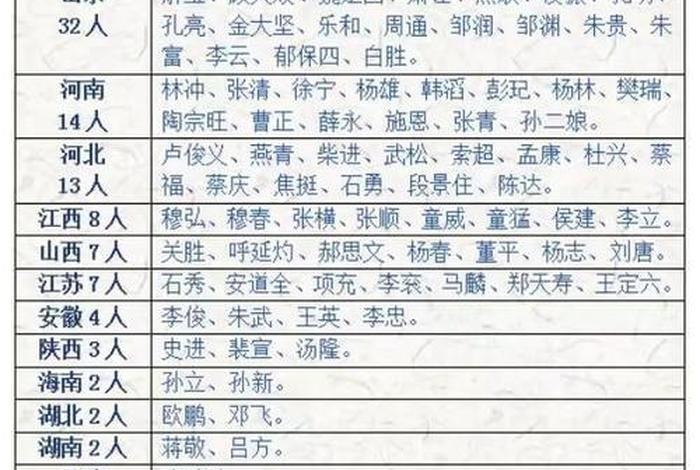 32人 孔亮、金大坚、乐和、周通、邹润、邹渊、朱贵、朱
富、李云、郁保四、白胜。
河南 林冲、张清、徐宁、杨雄、韩滔、彭玘、杨林、樊瑞、
14人 陶宗旺、曹正、薛永、施恩、张青、孙二娘。
河北 卢俊义、燕青、柴进、武松、索超、孟康、杜兴、蔡
13人 福、蔡庆、焦挺、石勇、段景住、陈达。
江西8人 穆弘、穆春、张横、张顺、童威、童猛、侯建、李立。
山西7人 关胜、呼延灼、郝思文、杨春、董平、杨志、刘唐。
江苏7人 石秀、安道全、项充、李衮、马麟、郑天寿、王定六。
安徽4人 李俊、朱武、王英、李忠。
陕西3人 史进、裴宣、汤隆。
海南2人 孙立、孙新。
湖北2人 欧鹏、邓飞。
湖南2人 蒋敬、吕方。